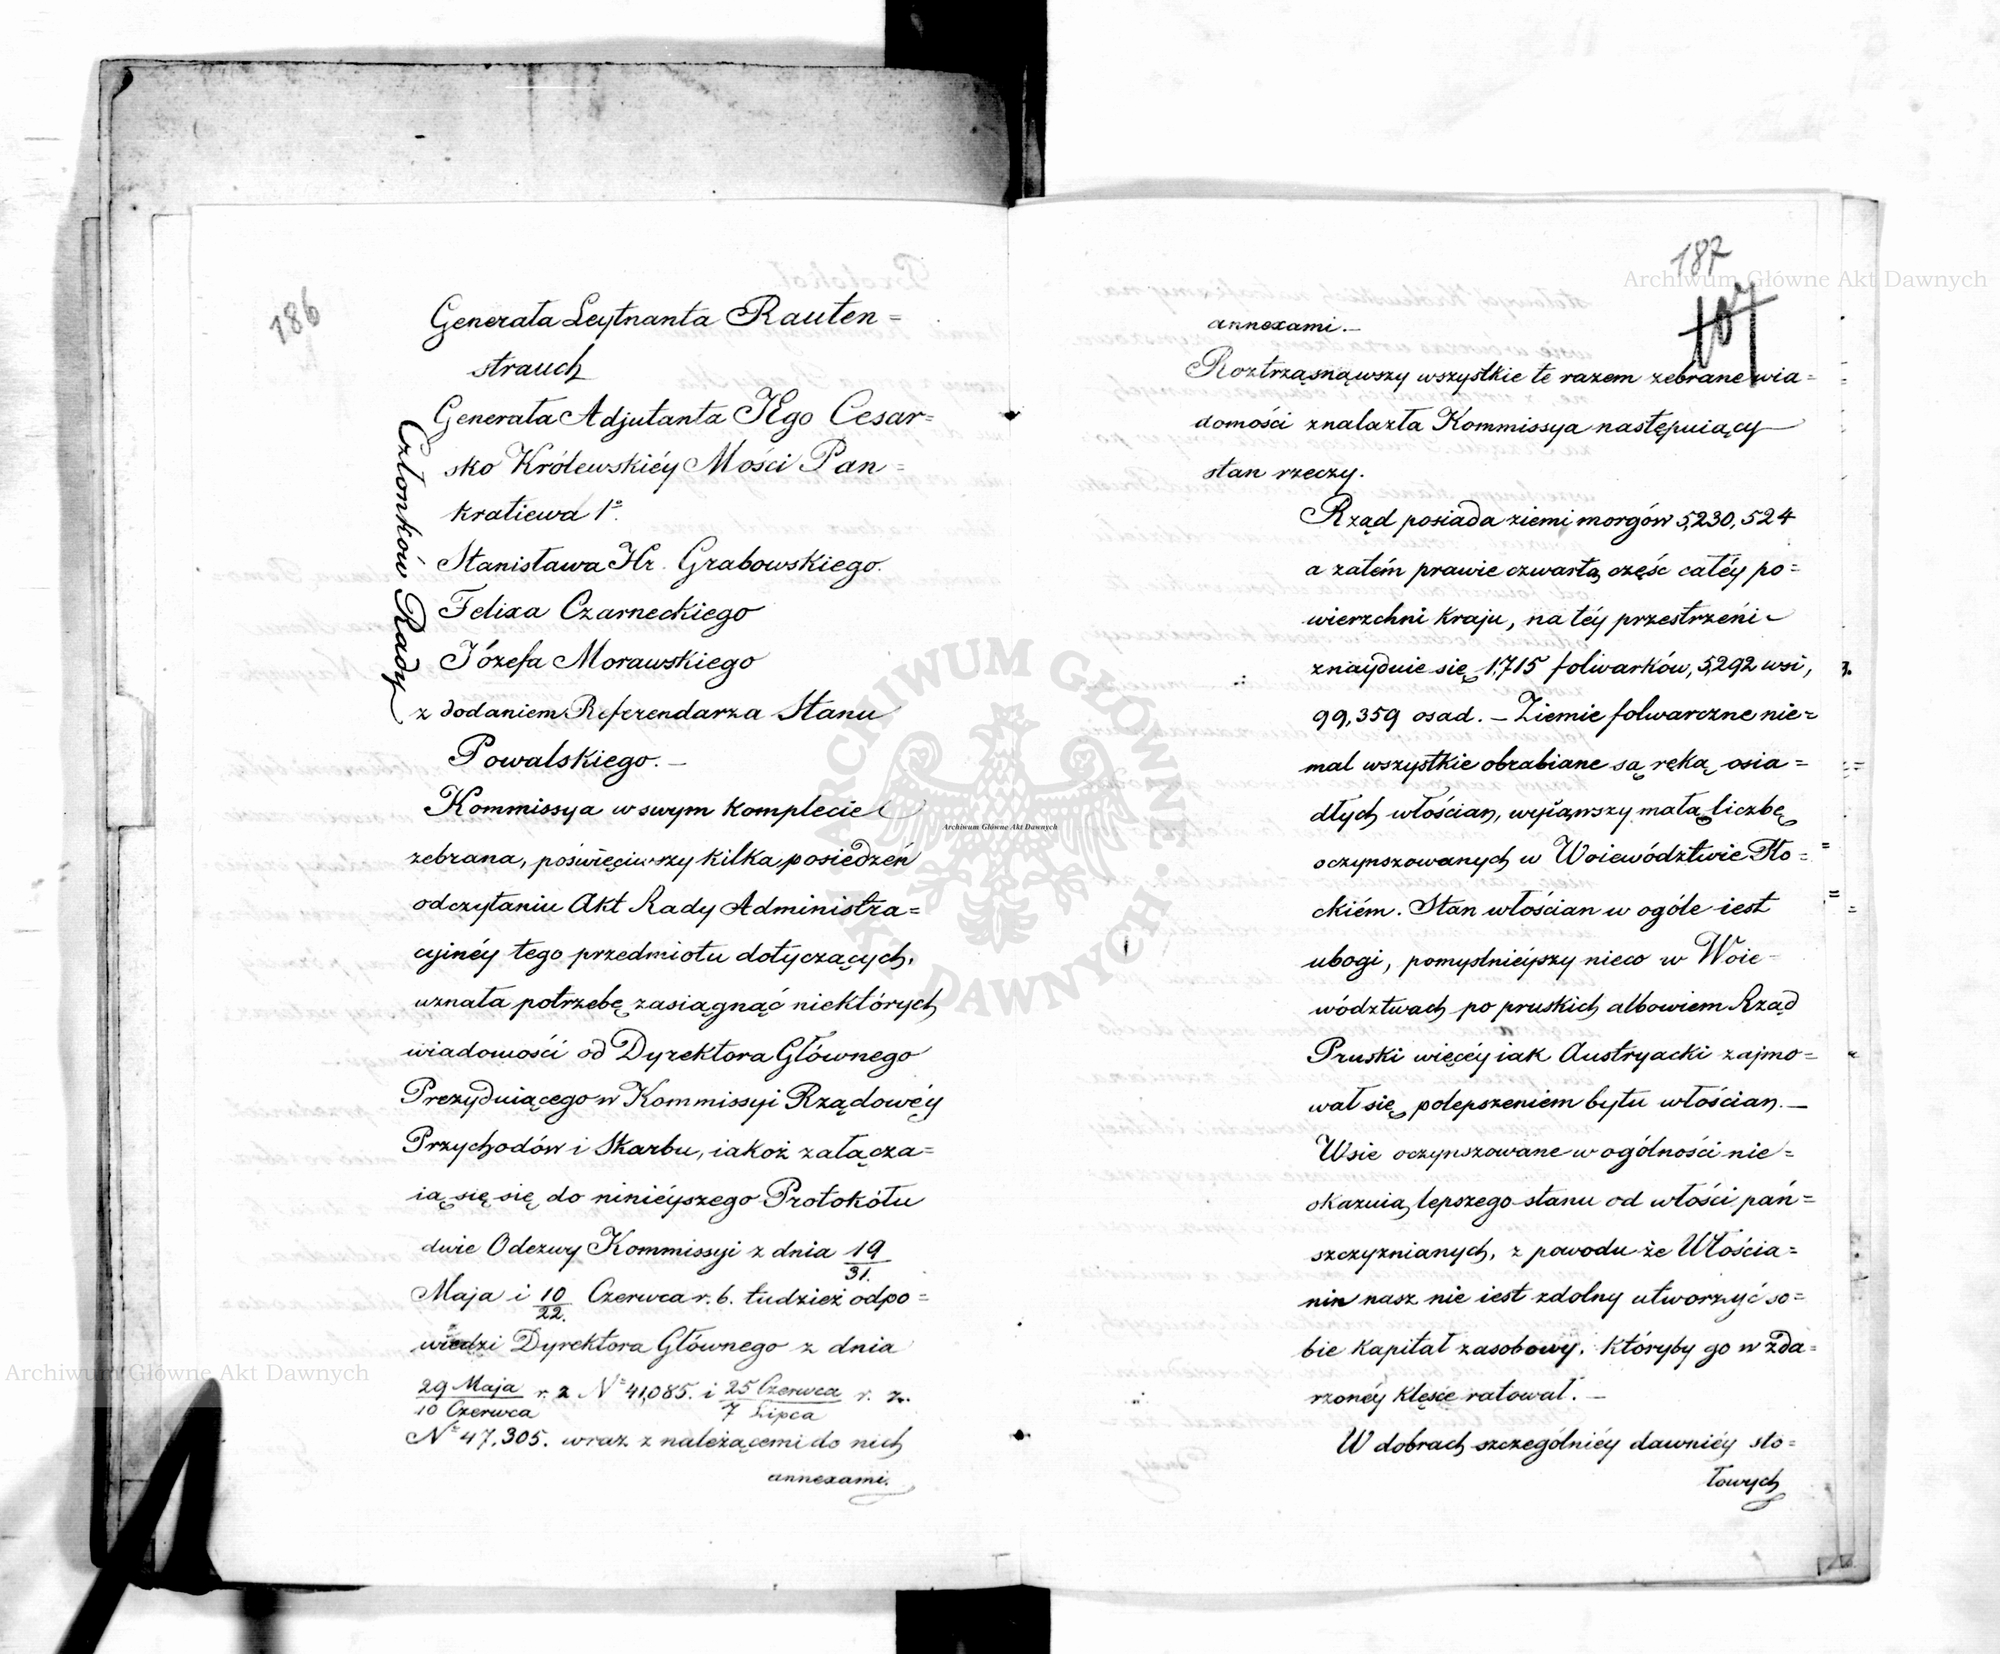 186
Generała Leytnanta Rauten=
strauch
Generała Adjutanta JEgo Cesar=
sko Królewskiéy Mości Pan=
kratiewa 1º
Stanisława Hr. Grabowskiego.
Felixa Czarneckiego
Józefa Morawskiego
Członków Rady
z dodaniem Referendarza Stanu
Powalskiego. —
Kommissya w swym komplecie
zebrana, poświęciwszy kilka posiedzeń
odczytaniu Akt Rady Administra=
cyinéy tego przedmiotu dotyczących,
uznała potrzebę zasiągnąć niektórych
wiadomości od Dyrektora Głównego
Prezyduiącego w Kommissyi Rządowéy
Przychodów i Skarbu, iakoż załącza=
ią się się do ninieyszego Protokółu
dwie Odezwy Kommissyi z dnia 19/31.
Maja i 10/22. Czerwca r. b. tudzież odpo=
wiedzi Dyrektora Głównego z dnia
29 Maja/10 Czerwca r. z Nº 41,085. i 25 Czerwca/7 Lipca r. z.
Nº 47,305. wraz z należącemi do nich
annexami.
187
107
annexami. —
Roztrząsnąwszy wszystkie te razem zebrane wia=
domości znalazła Kommissya następuiący
stan rzeczy.
Rząd posiada ziemi morgów 5,230,524
a zatém prawie czwartą część całéy po=
wierzchni kraju, na téy przestrzeni
znayduie się 1,715 folwarków, 5,292 wsi,
99,359 osad. — Ziemie folwarczne nie=
mal wszystkie obrabiane są ręką osia=
dłych włościan, wyiąwszy małą liczbę
oczynszowanych w Woiewództwie Pło=
ckiém. Stan włościan w ogóle iest
ubogi, pomyslniéyszy nieco w Woie=
wództwach po pruskich albowiem Rząd
Pruski więcéy iak Austryacki zajmo=
wał się polepszeniem bytu włościan. —
Wsie oczynszowane w ogólności nie=
okazuią lepszego stanu od włości pań=
szczyznianych, z powodu że Włościa=
nin nasz nie iest zdolny utworzyć so=
bie kapitał zasobowy, któryby go w zda=
rzonéy klęsce ratował. —
W dobrach szczególniéy dawniéy sto=
łowych
Archiwum Główne Akt Dawnych
Archiwum Główne Akt Dawnych
Archiwum Główne Akt Dawnych
ARCHIWUM GŁÓWNE AKT DAWNYCH